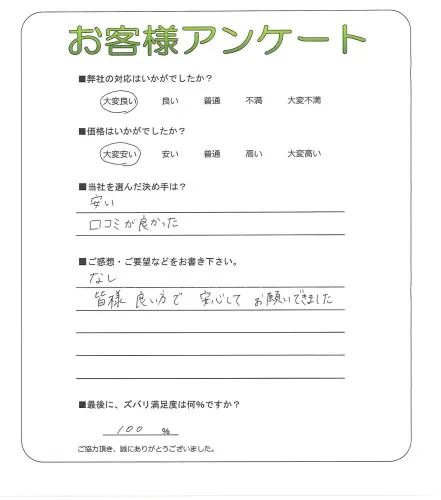 お客様アンケート
■弊社の対応はいかがでしたか?
大変良い 良い 普通 不満 大変不満
■価格はいかがでしたか?
大変安い 安い 普通 高い 大変高い
■当社を選んだ決め手は?
安い
口コミが良かった
■ご感想・ご要望などをお書き下さい。
なし
皆様 良い方で 安心して お願いできました
■最後に、ズバリ満足度は何%ですか?
100 %
ご協力頂き、誠にありがとうございました。